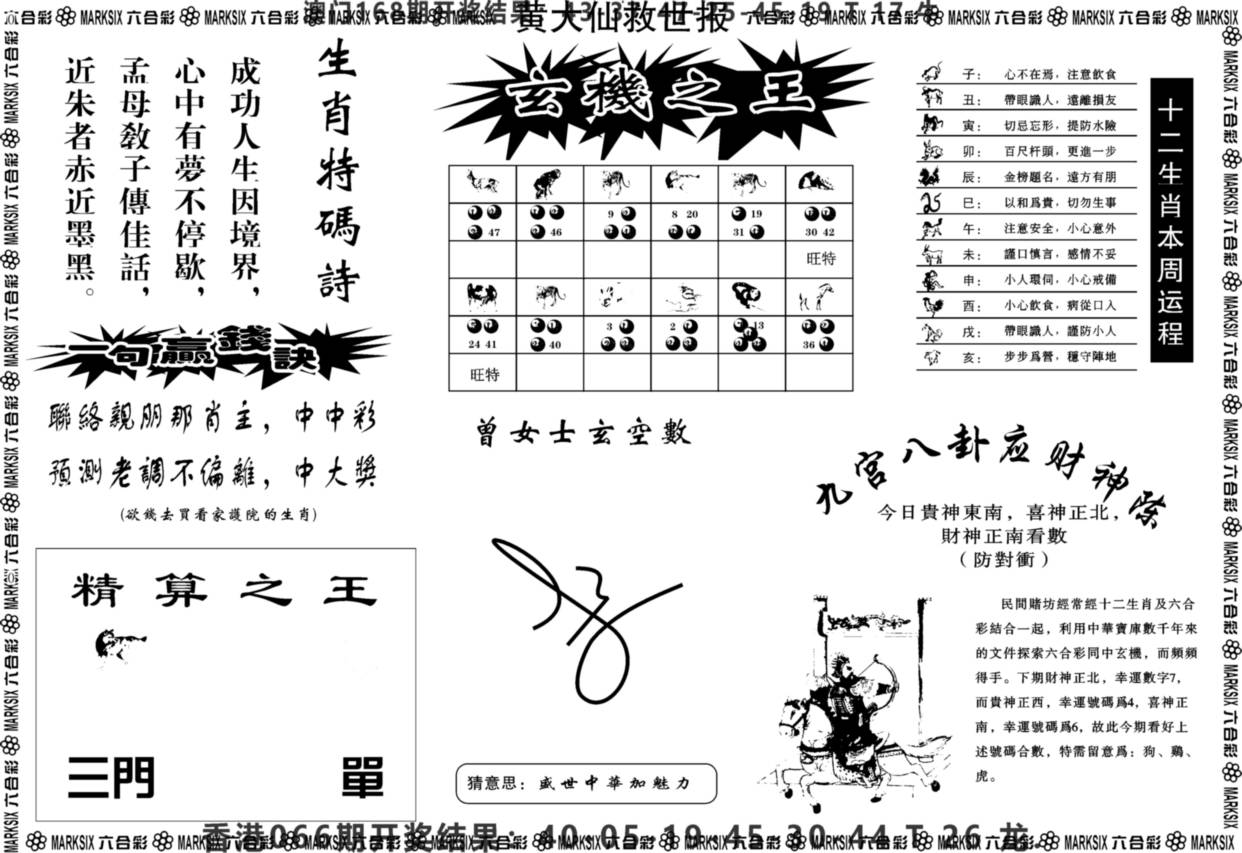 黄大仙救世报
生肖特碼詩
成功人生因境界，
心中有夢不停歇，
孟母教子傳佳話，
近朱者赤近墨黑。
一句贏錢訣
聯絡親朋那肖主，中中彩
預測老調不偏離，中大獎
(欲錢去買看家護院的生肖)
精算之王
三門 單
玄機之王
47 46 9 8 20 19 31 30 42
旺特
24 41 40 3 2 13 36
旺特
曾女士玄空數
猜意思：盛世中華加魅力
十二生肖本周运程
子：心不在焉，注意飲食
丑：帶眼識人，遠離損友
寅：切忌忘形，提防水險
卯：百尺杆頭，更進一步
辰：金榜題名，遠方有朋
巳：以和爲貴，切勿生事
午：注意安全，小心意外
未：謹口慎言，感情不妥
申：小人環伺，小心戒備
酉：小心飲食，病從口入
戌：帶眼識人，謹防小人
亥：步步爲營，穩守陣地
九宮八卦应财神
今日貴神東南，喜神正北，
財神正南看數
（防對衝）
民間賭坊經常經十二生肖及六合
彩結合一起，利用中華寶庫數千年來
的文件探索六合彩同中玄機，而頻頻
得手。下期財神正北，幸運數字7，
而貴神正西，幸運號碼爲4，喜神正
南，幸運號碼爲6，故此今期看好上
述號碼合數，特需留意爲：狗、鷄、
虎。
香港066期开奖结果：40 05 19 45 30 44 T 26 龙
MARKSIX 六合彩